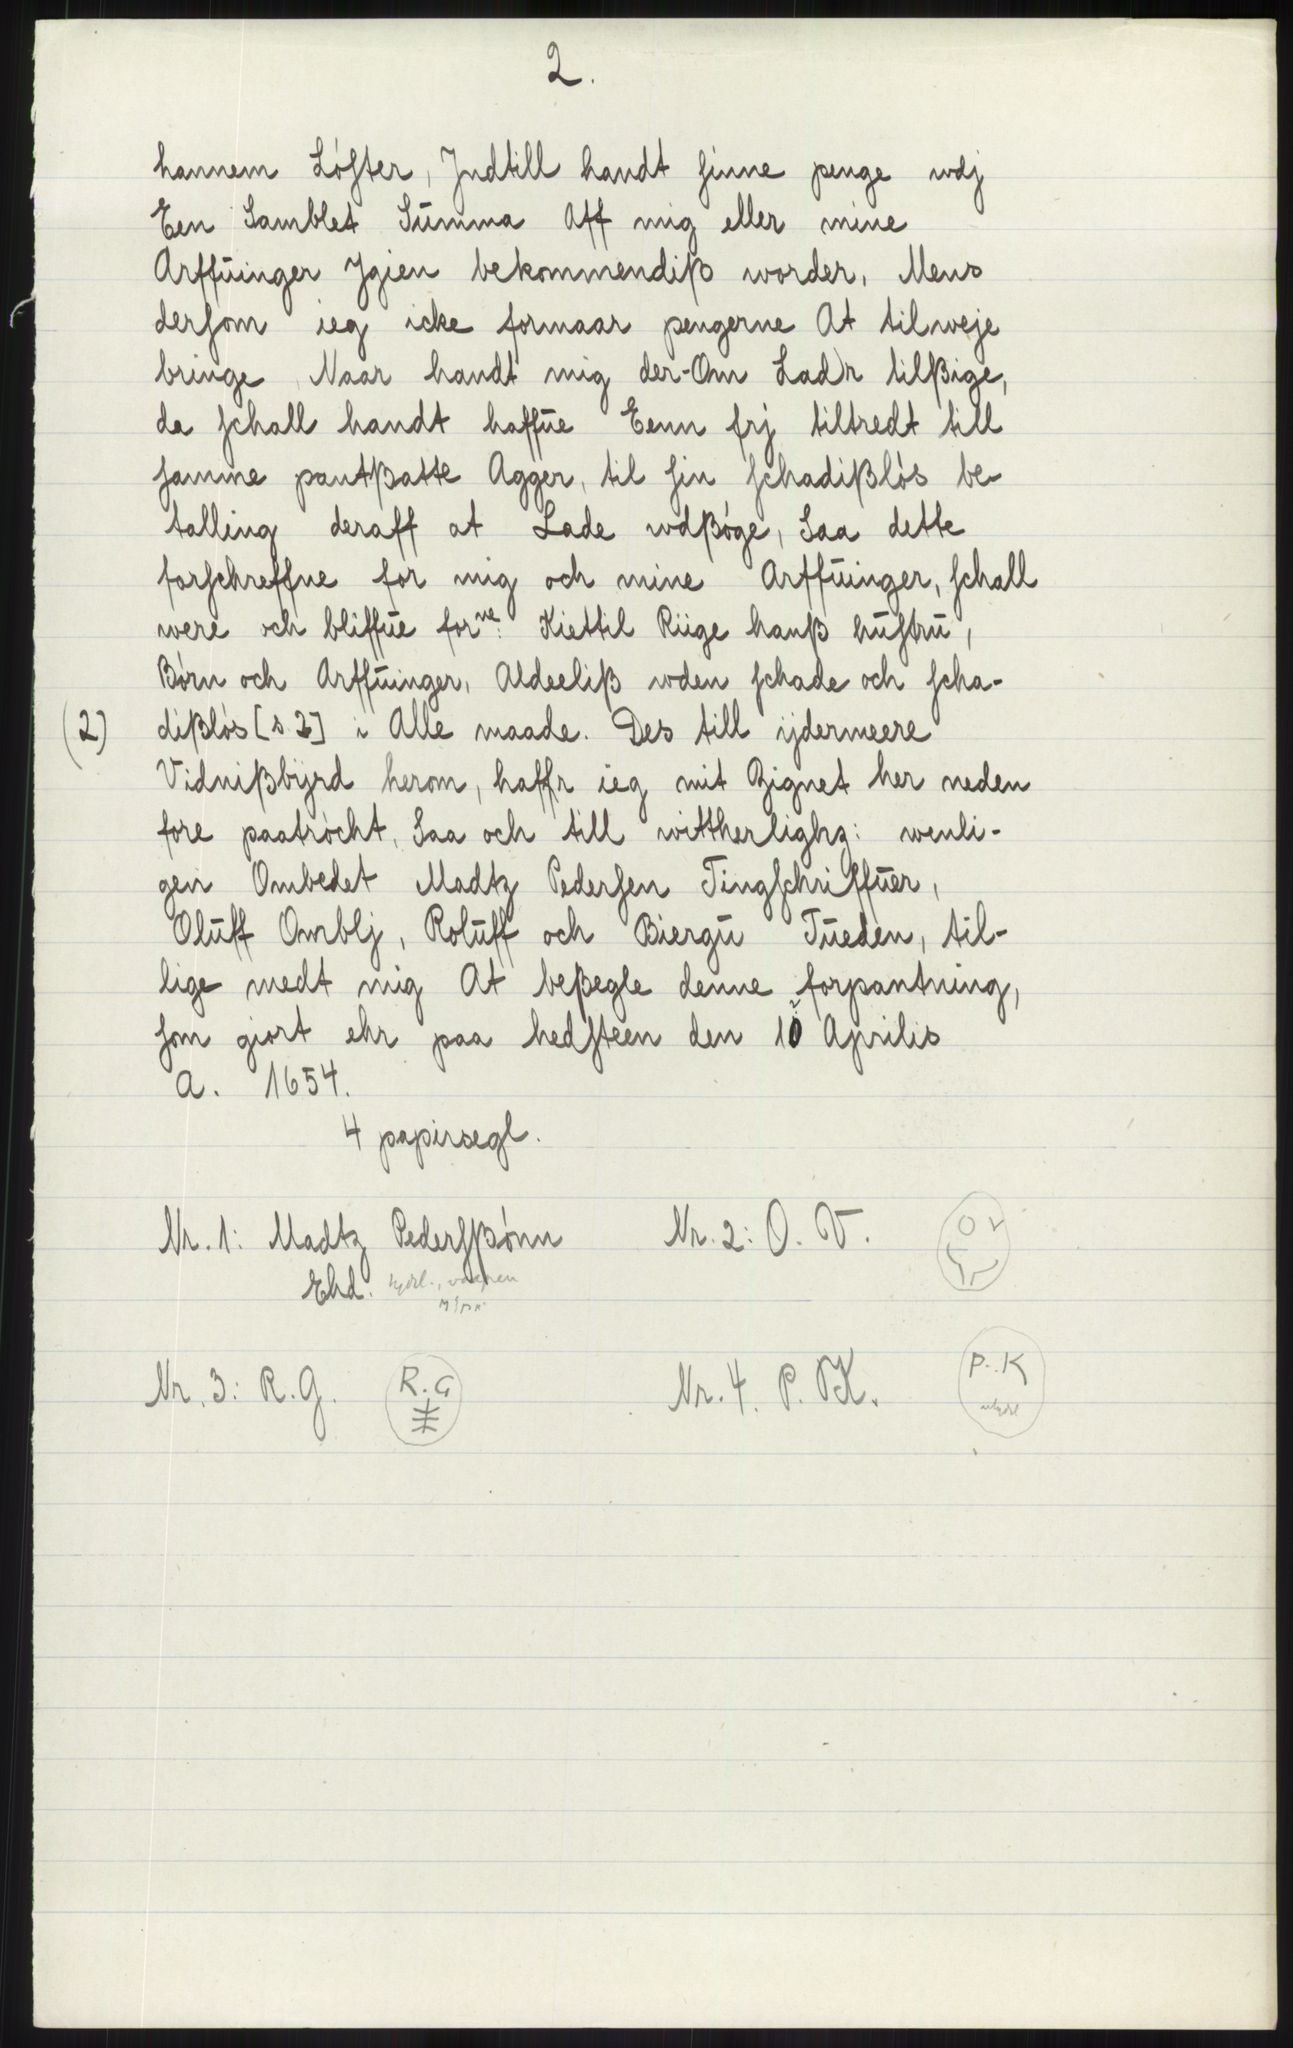 2.
hannem Lóſter, Jndtill handt ſinne penge wdj
Een Samblet Summa Aff mig eller mine
Arffŭinger Jgien bekommendiß worder, Mens
derſom ieg icke formaar pengerne At tilweje
bringe, Naar handt mig der-Om Ladr tilßige,
da ſchall handt haffŭe Eenn frj tiltredt till
ſamme pantßatte Agger, til ſin ſchadißlós be-
talling deraff at Lade wdßóge, Saa dette
forſchreffne for mig och mine Arffŭinger, ſchall
were och bliffŭe forne: Kiettil Riige hanß hŭſtrŭ,
Bórn och Arffŭinger, Aldeeliß wden ſchade och ſcha-
(2) dißlós [s 2] i Alle maade. Des till ijdermeere
Vidnißbijrd herom, haffr ieg mit Zignet her neden
fore paatrócht, Saa och till wittherlighz: wenli-
gen Ombedet Madtz Pederſen Tingſchriffŭer,
Olŭff Omblj, Rolŭff och Biergŭ Tŭeden, til-
lige medt mig At beßegle denne forpantning,
ſom giort ehr paa hedſteen den 10 Aprilis
A. 1654.
4 papirsegl.
Nr. 1: Madtz Pederſßónn Nr. 2: O. V.
Ehd.
Nr. 3: R. G. R. G Nr. 4. P. K. P. K